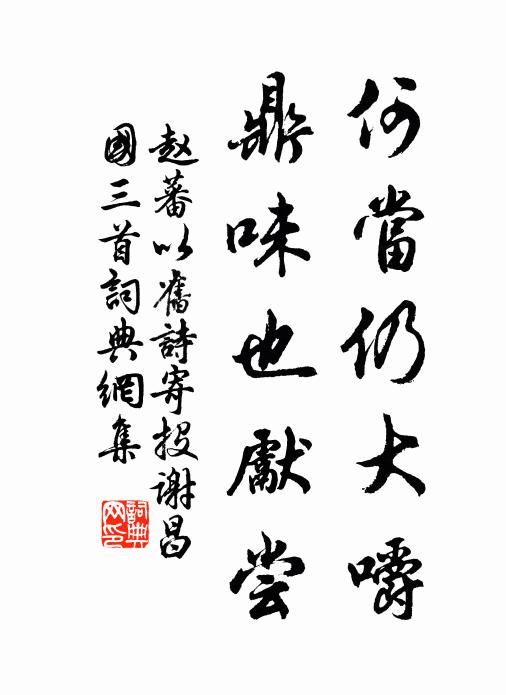 何當仍大嚼
鼎味也獻尝
赵蕃以舊詩寄投谢昌
國三首詞典網集
詞典网印